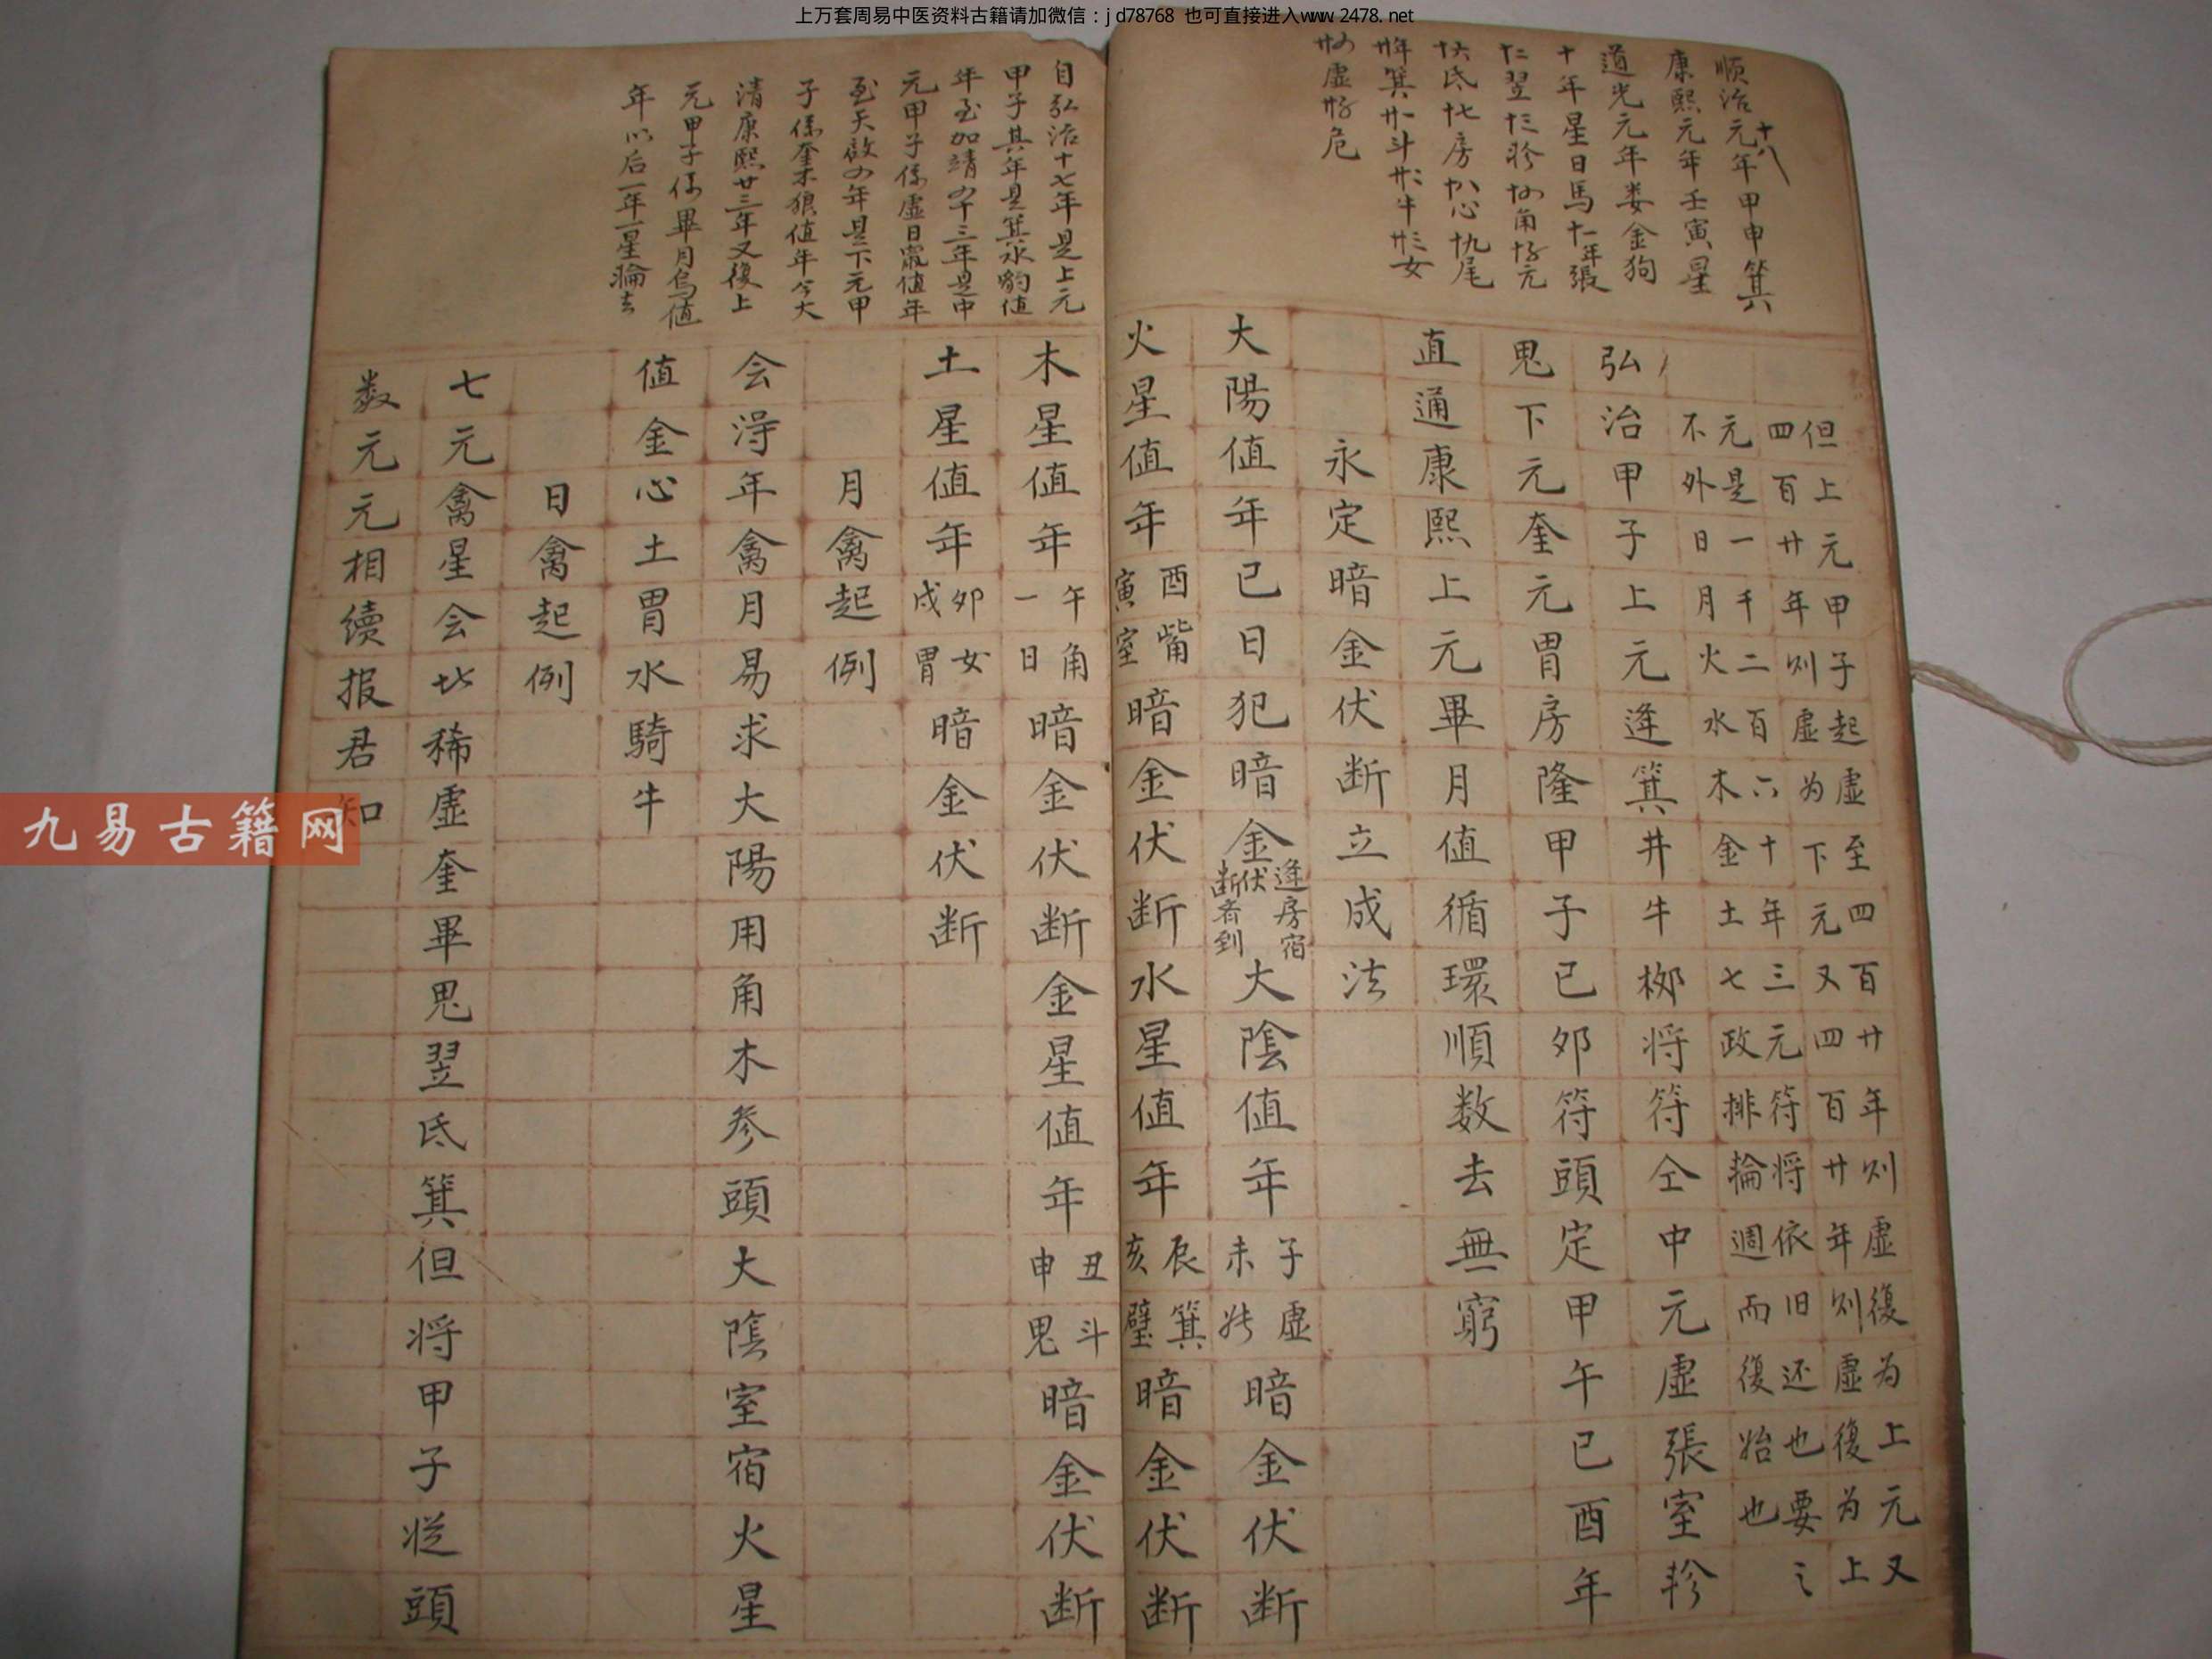 上万套周易中医资料古籍请加微信：jd78768 也可直接进入www.2478.net
順治元年甲申箕
十八
康熙元年壬寅星
道光元年娄金狗
十年星日馬十一年張
十二翌十三軫十四角十五亢
十六氐十七房十八心十九尾
廿年箕廿一斗廿二牛廿三女
廿四虛廿五危
但上元甲子起虛至四百廿年則虛復为上元又
四百廿年则虛为下元又四百廿年则虛復为上
元是一千二百六十年三元符将依旧还也要之
不外日月火水木金土七政排輪週而復始也
弘治甲子上元逢箕井牛柳将符仝中元虛張室軫
鬼下元奎元胃房隆甲子己卯符頭定甲午己酉年
直通康熙上元畢月值循環順数去無窮
永定暗金伏断立成法
大陽值年已日犯暗金
逢房宿
伏断者到
大陰值年
子虛
未
暗金伏断
火星值年
酉觜
寅室
暗金伏断水星值年
辰箕
亥壁
暗金伏断
自弘治十七年是上元
甲子其年是箕水豹值
年至加靖四十三年是中
元甲子係虛日鼠值年
至天啟四年是下元甲
子係奎木狼值年今大
清康熙廿三年又復上
元甲子係畢月烏值
年以后一年一星輪去
木星值年
午角
一日
暗金伏断金星值年
丑斗
申鬼
暗金伏断
土星值年
卯女
戌胃
暗金伏断
月禽起例
会淂年禽月易求大陽用角木参頭大陰室宿火星
值金心土胃水騎牛
日禽起例
七元禽星会此稀虛奎畢鬼翌氐箕但将甲子从頭
数元元相續报君知
九易古籍网